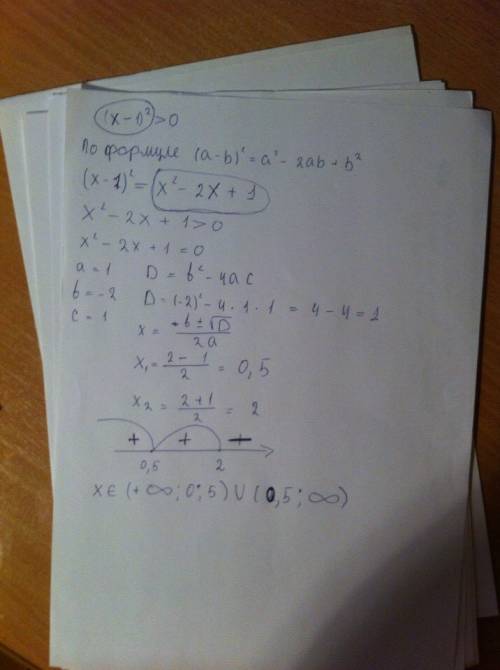 (x-1)²>0
По формуле (a-b)²=a²-2ab+b²
(x-1)²= x²-2x+1
x²-2x+1>0
x²-2x+1=0
a=1 D=b²-4ac
b=-2 D=(-2)²-4·1·1 = 4-4=1
c=1 x= -b±√D/2a
x₁= 2-1/2 = 0,5
x₂= 2+1/2 = 2
+ + +
0,5 2
x∈(+∞;0,5)∪(0,5;∞)